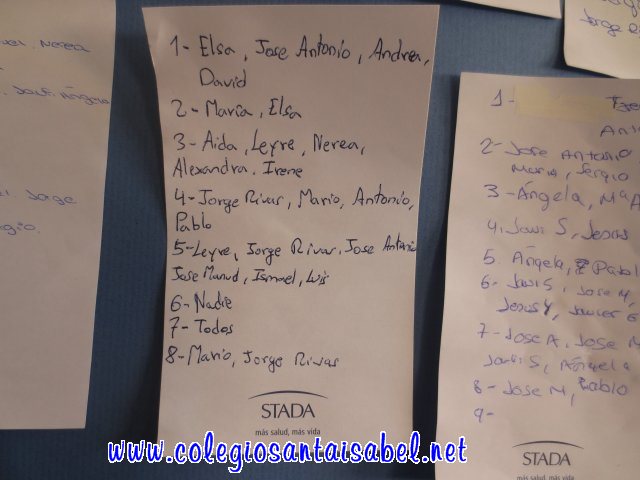 Nerea
Jorge
1- Elsa, Jose Antonio, Andrea,
David
2- María, Elsa
3- Aida, Leyre, Nerea,
Alexandra, Irene
4- Jorge Rivas, Mario, Antonio,
Pablo
5- Leyre, Jorge Rivas, Jose Antonio
Jose Manuel, Ismael, Luis
6- Nadie
7- Todos
8- Mario, Jorge Rivas
STADA
más salud, más vida
Jorge Ri
1-
2- Jose Antonio
María, Sergio
3- Ángela, Mª A
4. Javi S, Jesús
5. Ángela, Pabl
6- Javi S, Jose M,
Jesús Y, Javier G
7- Jose A, Jose M
Javi S, Ángela
8- Jose M, Pablo
9-
STADA
más salud, más vida
www.colegiosantaisabel.net